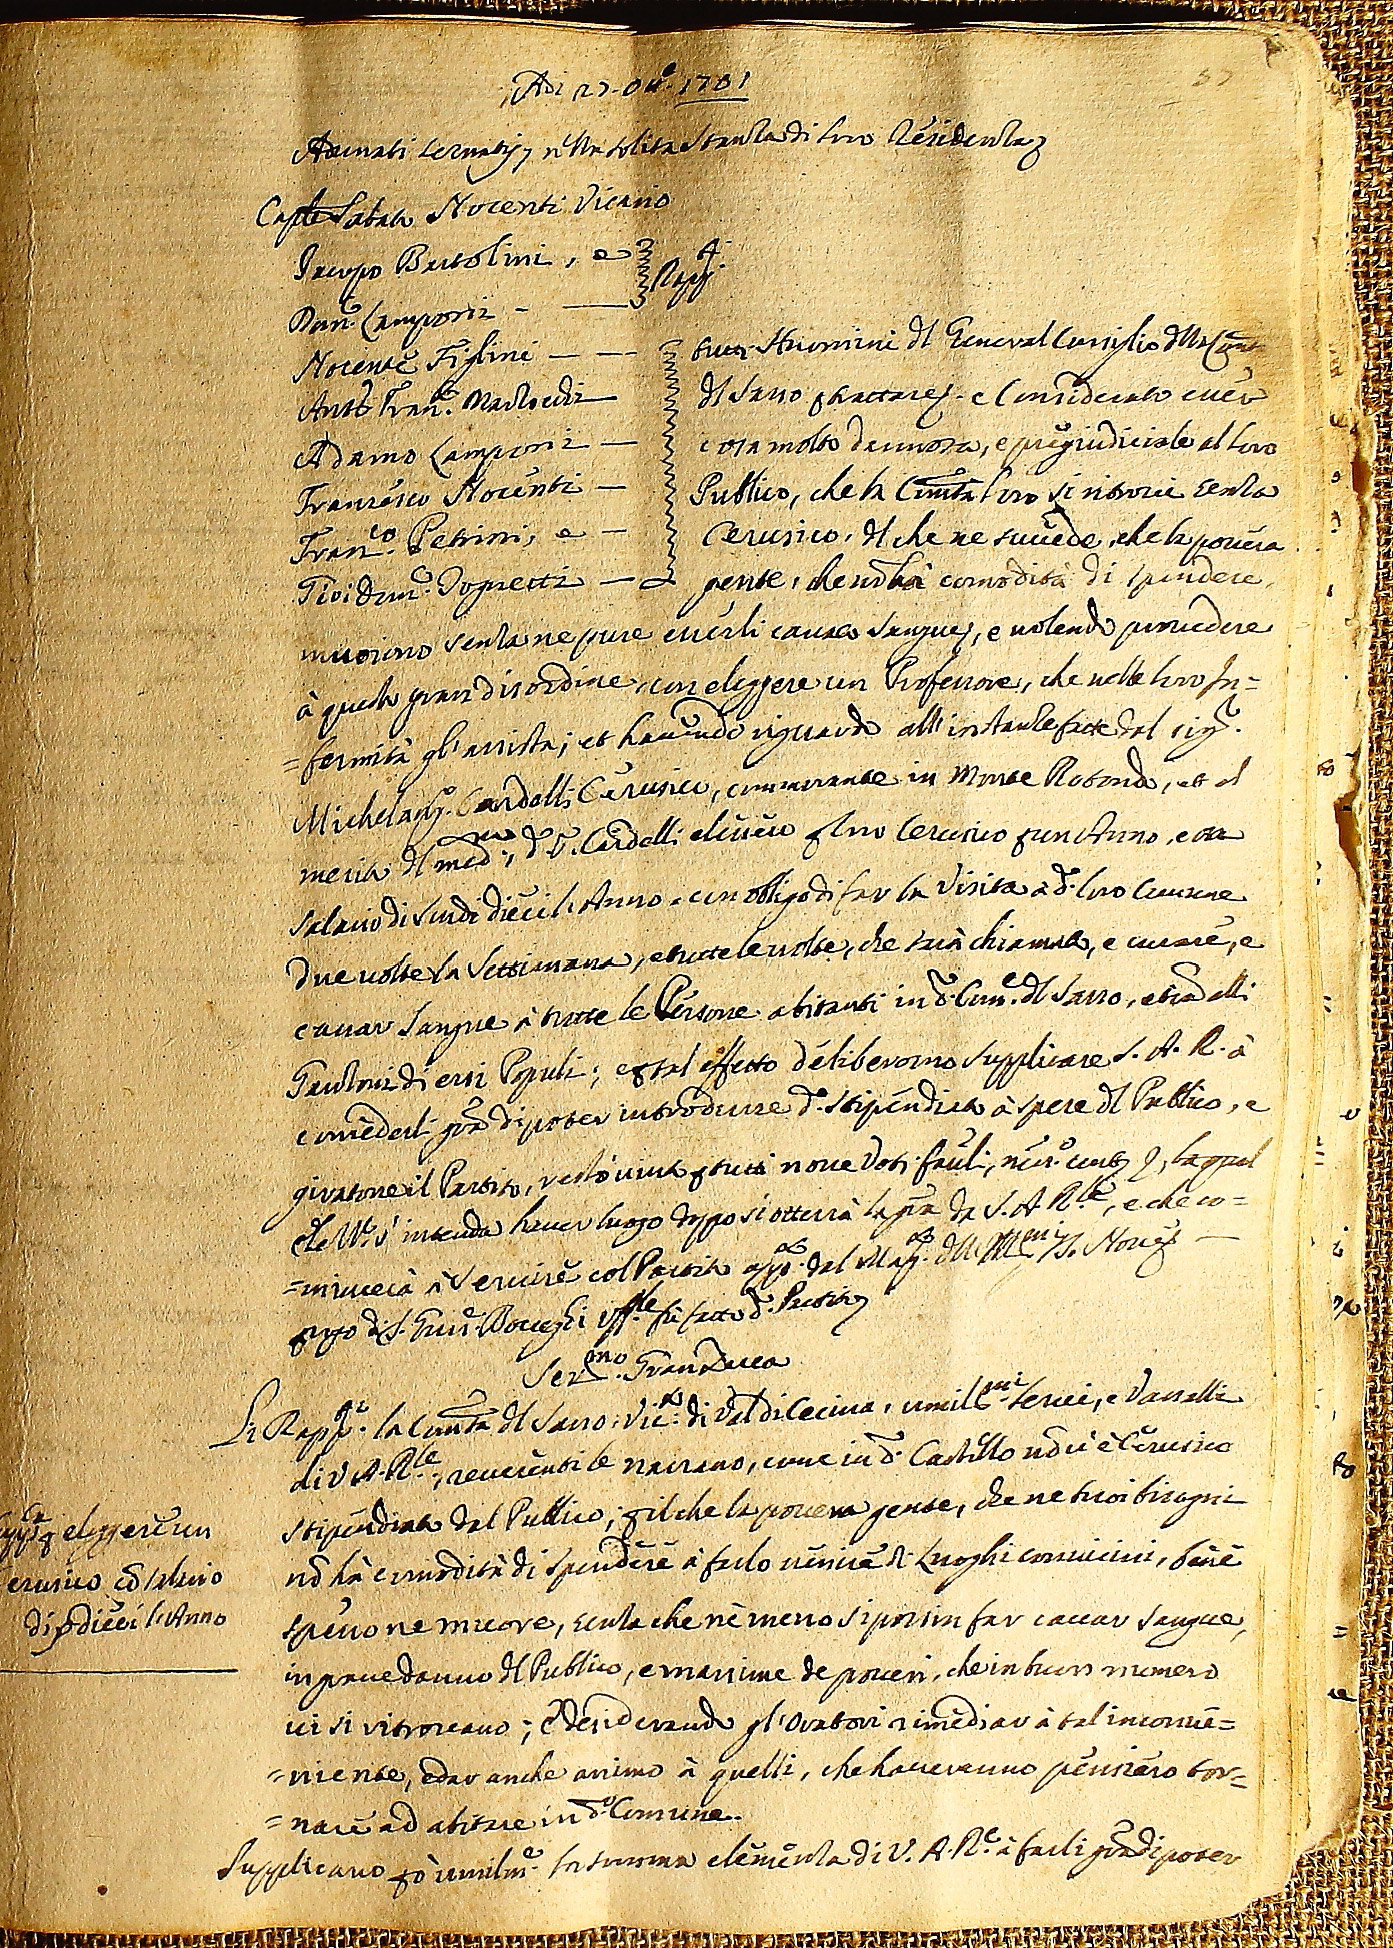 Adì 27. Ott.e 1701
37
Adunati servatis, nella solita Stanza di loro Residenza
Sabato Nocenti Vicario
Jacopo Bartolini, e
Rapp.ti
Dom.co Camporsi -
Nocente Figlini — —
Ant.o Fran.co —
Adamo Camporsi —
Francesco Nocenti —
Fran.co Petrini, e —
Giò: Dom.co Dogretti —
tutti Huomini del General Consiglio della Com.tà
del Sasso e Considerato esser
cosa molto dannosa, e pregiudiciale al loro
Publico, che la Comtà loro si ritrovi senza
Cerusico, del che ne succede, che la povera
gente, che nõ hà comodità di spendere,
muoiono senza ne pure esserli cavato sangue, e volendo provedere
à questo gran disordine, con eleggere un Professore, che nelle loro In=
=fermità gl'assista; et havendo riguardo all'instanze fatte dal Sig.r
Michelang.o Cardelli Cerusico, commorante in Monte Rotondo, et al
merito del med.mo, d.o S. Cardelli elessero p loro Cerusico p un Anno, e con
salario di scudi dieci l'Anno, con obligo di far la Visita à d.o loro Comune
due volte la Settimana, e tutte le volte, che sarà chiamato, e curare, e
cavar sangue à tutte le Persone abitanti in d.o Com.e del Sasso, et ad alli
di essi Popoli; e p tal effetto deliberorno supplicare S. A. R. à
concederli grã di poter introdurre d.o stipendiato à spese del Publico, e
giratone il Partito, restò vinto p tutti nove Voti favli, nes.o cont.o, la qual
s'intenda haver luogo doppo si otterrà la grã da S. A. R.le, e che co=
=mincerà à servire col Partito app.to dal Mag.to delli S. Nove
rogo di S. Boccighi Uff.le fù fatto d.o Partito
Ser.mo GranDuca
Li Rapp.ti la Comtà del Sasso, Vic.o di Val di Cecina, umil.mi servi, e Vassalli
di V. A. R.le, reverenti le narrano, come in d.o Castello nõ ci è Cerusico
stipendiato dal Publico; p il che la povera gente, che ne suoi bisogni
nõ hà comodità di spendere à farlo venire da Luoghi convicini, bene
spesso ne muore, senza che ne meno si possin far cavar sangue,
in grave danno del Publico, e massime de poveri, che in buon numero
vi si ritrovano; e desiderando gl'Oratori rimediar à tal inconve=
=niente, e dar anche animo à quelli, che havevano pensiero tor=
=nare ad abitare in d.o Comune.
Supplicano p ciò umilm.e la somma clemenza di V. A. R.e à farli grã di poter
p eleggere un
erusico cõ salario
di dieci l'Anno